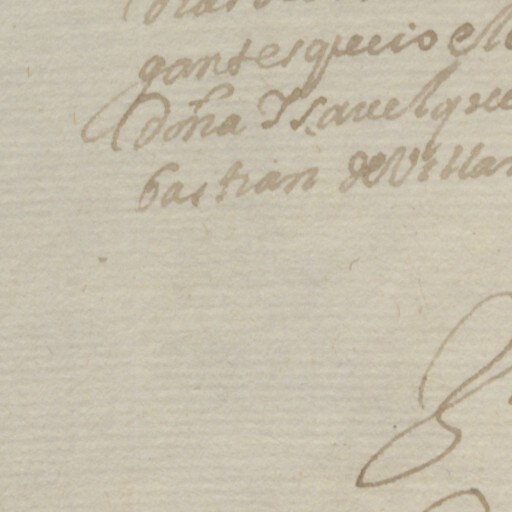 gantes que io el
Doña Ysauel que
bastian de Villa